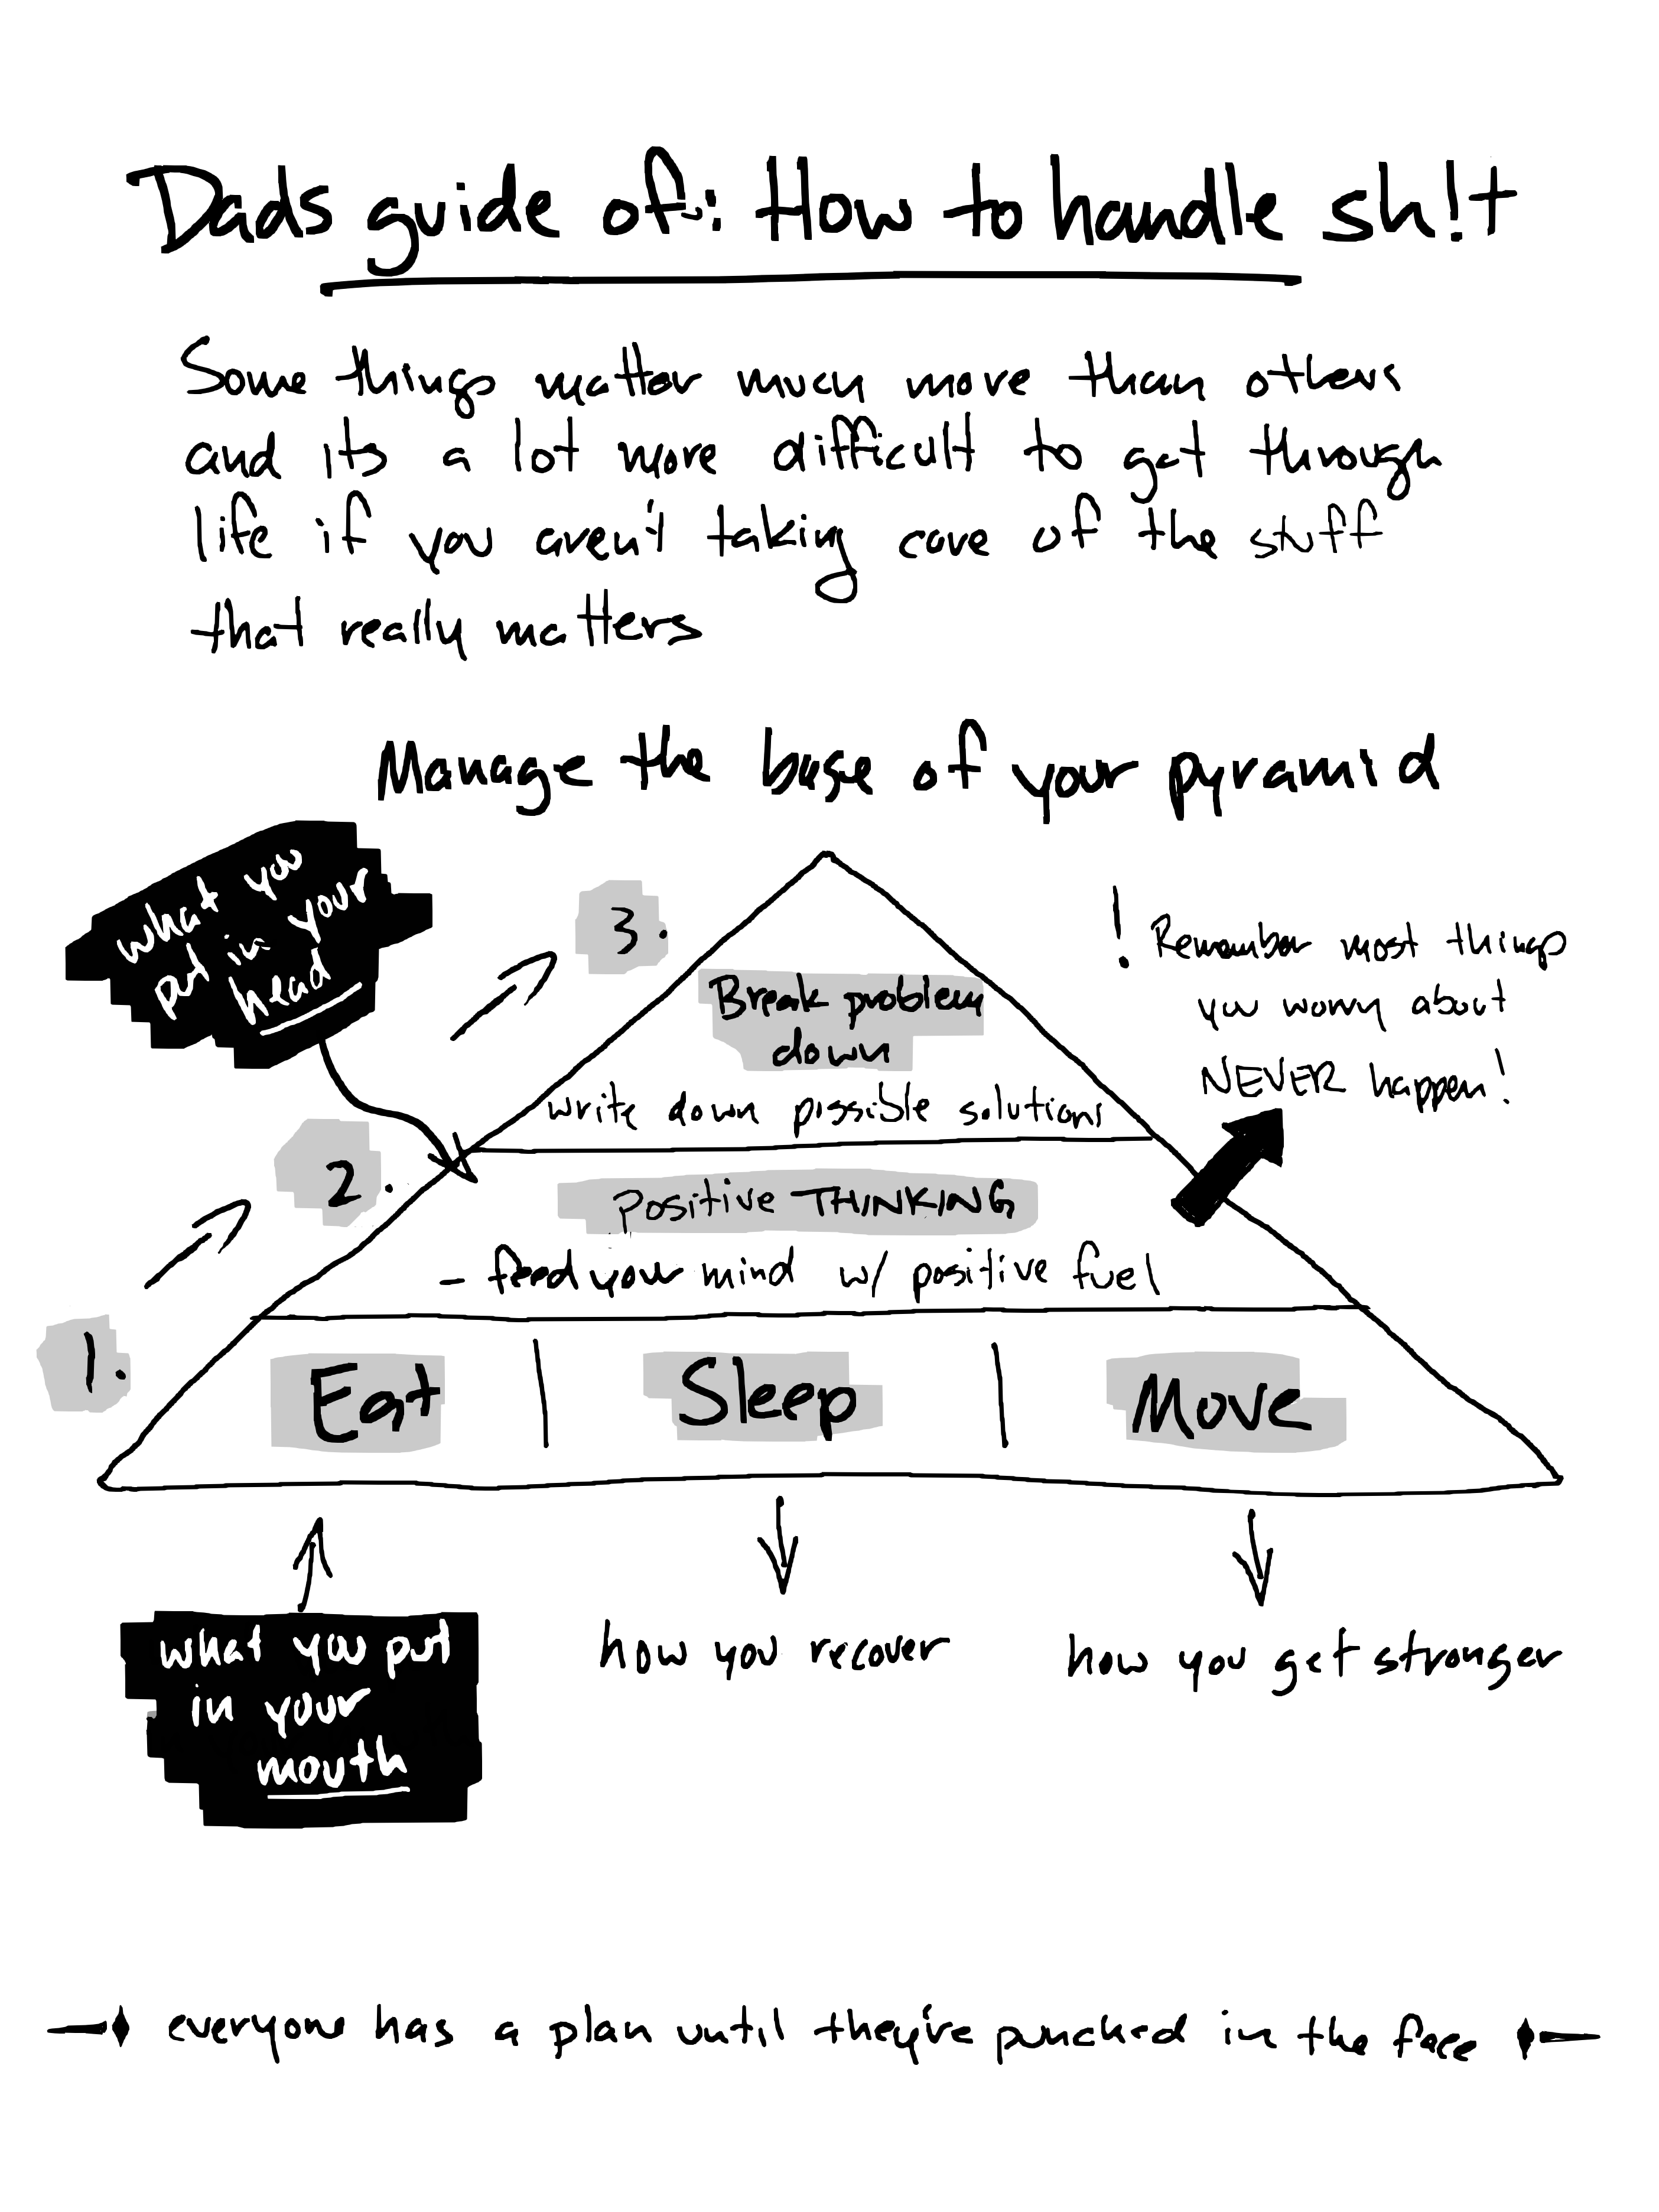 Dads guide of: How to handle sh!t
Some things matter much more than others
and its a lot more difficult to get through
life if you aren't taking care of the stuff
that really matters
Manage the base of your pyramid
what you
put in your
head
3.
Break problem
down
write down possible solutions
! Remember most things
you worry about
NEVER happen!
2.
Positive THINKING
- feed your mind w/ positive fuel
1.
Eat | Sleep | Move
what you put
in your
mouth
how you recover
how you get stronger
everyone has a plan until they're punched in the face